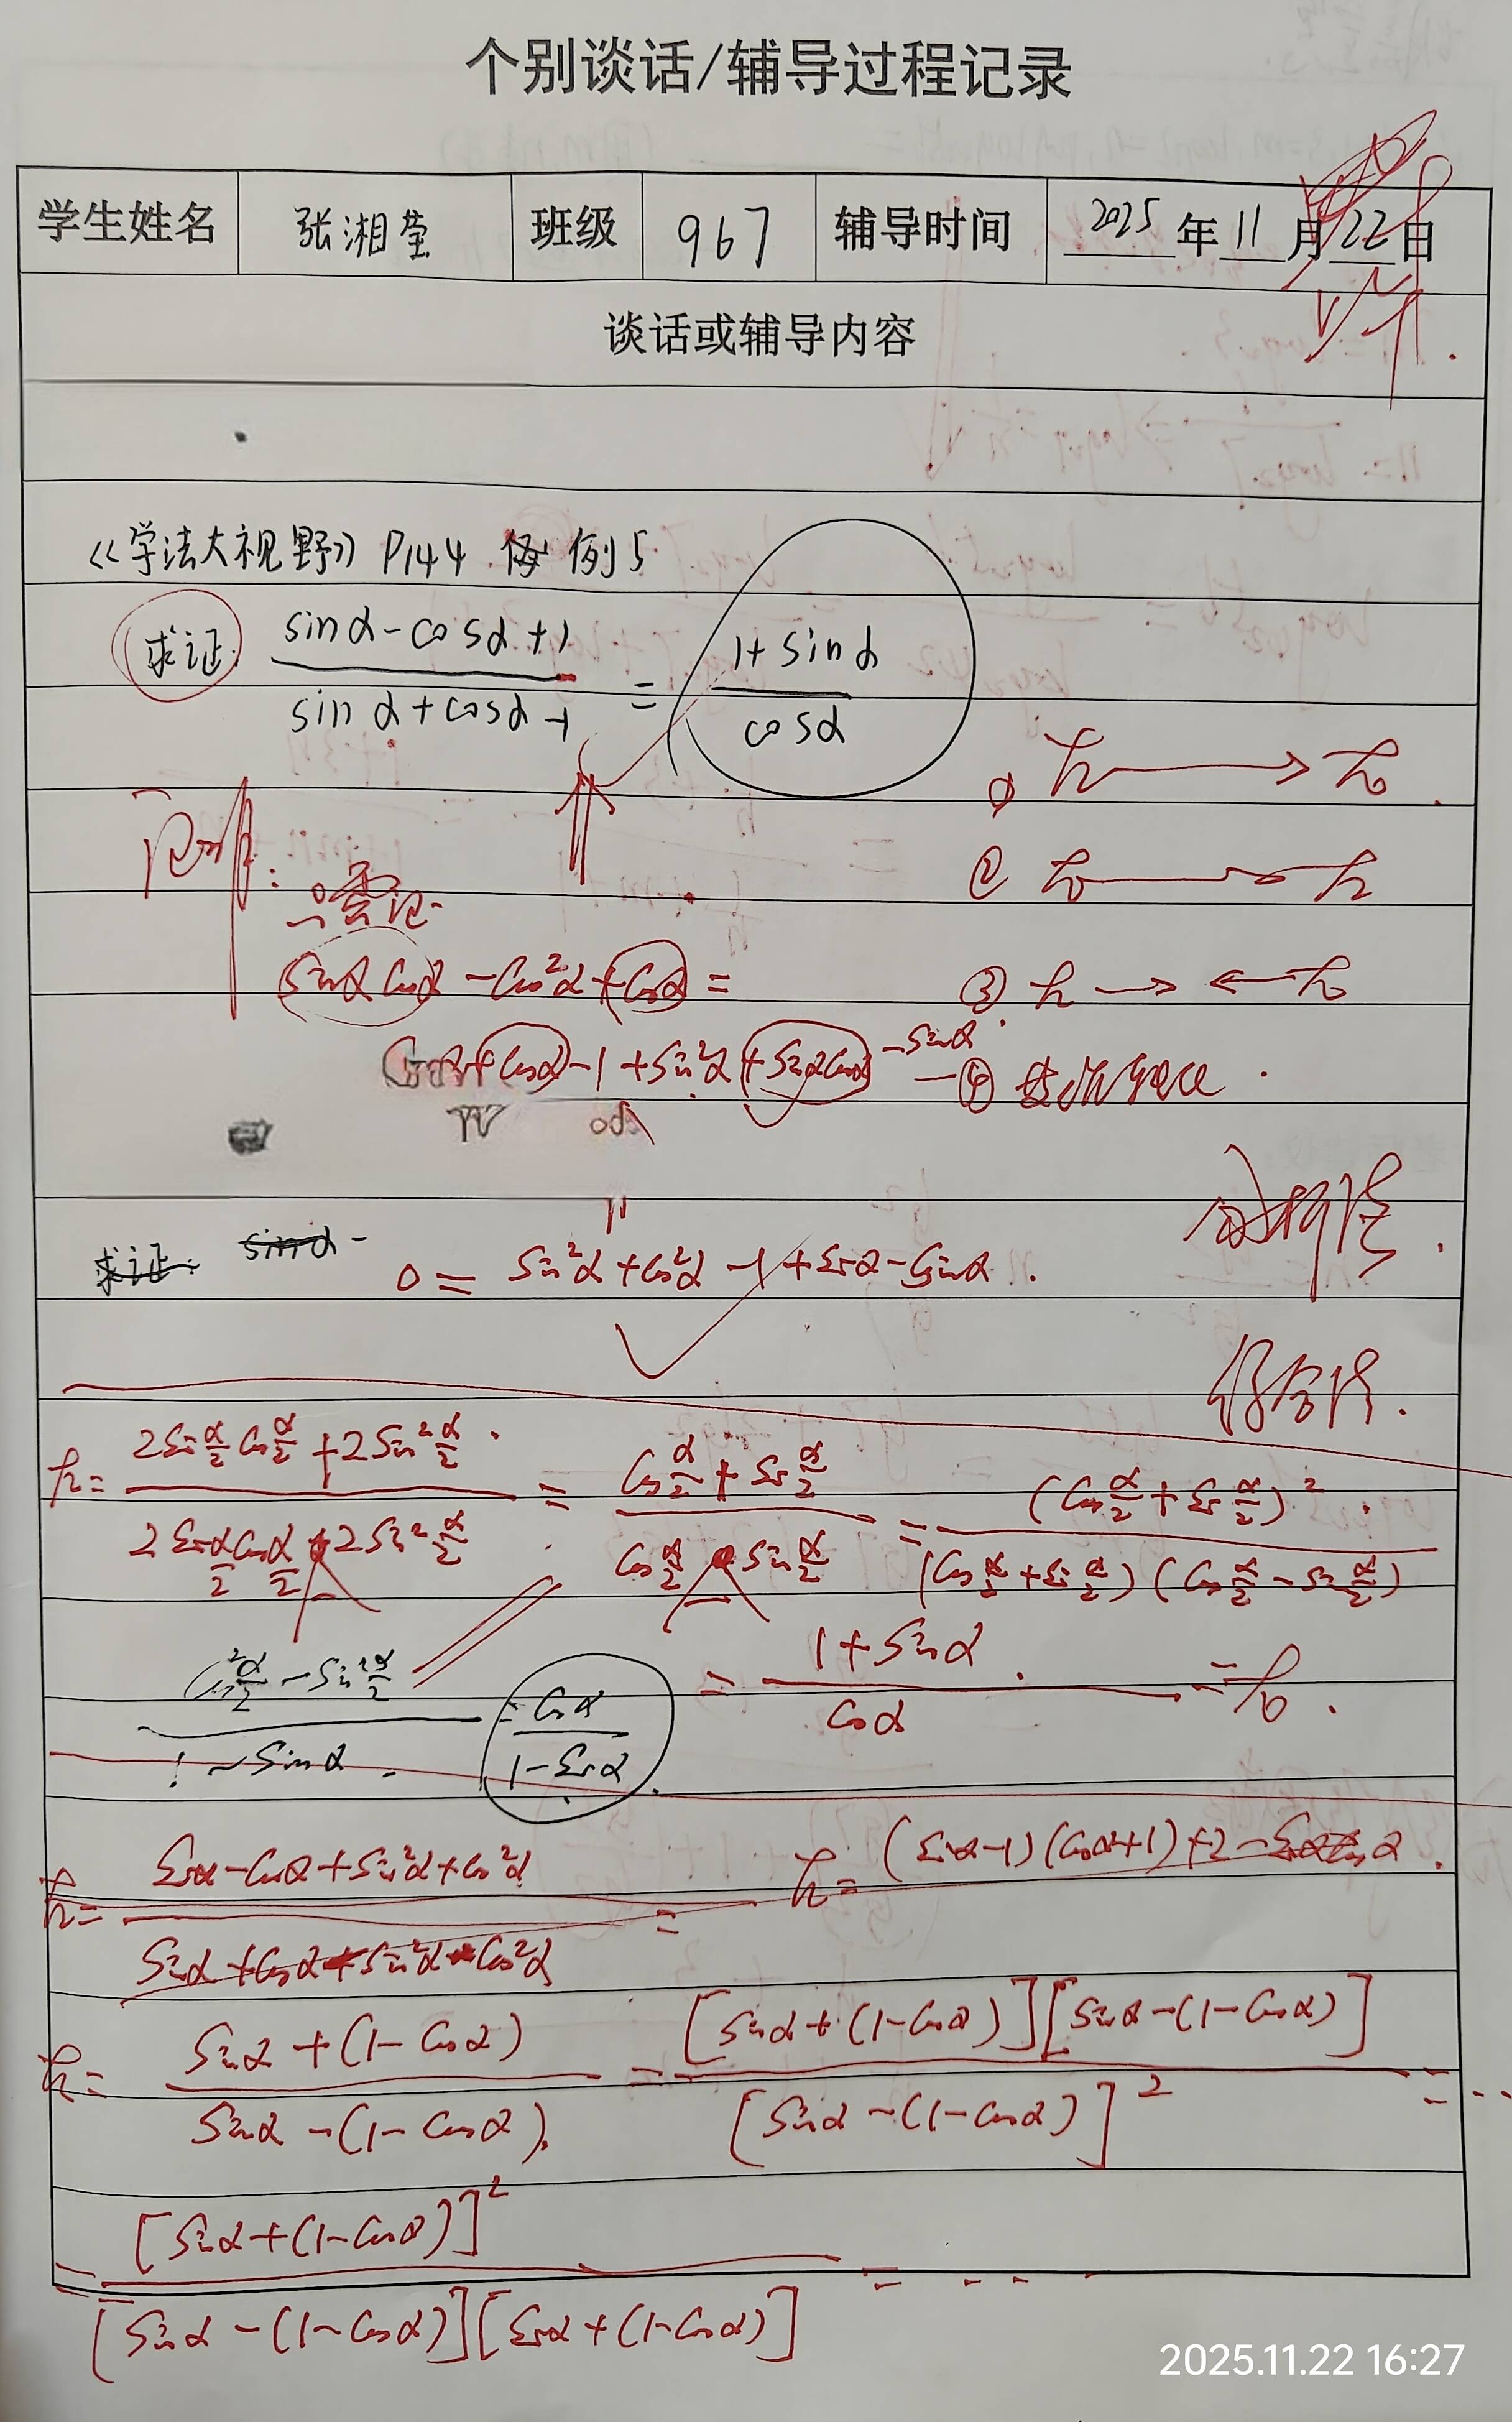 个别谈话/辅导过程记录
学生姓名 张湘莹 班级 967 辅导时间 2025年11月22日
谈话或辅导内容
《学法大视野》P144 例5
求证: (sinα-cosα+1)/(sinα+cosα-1) = (1+sinα)/cosα
① 左→右
② 右→左
只需证
sinαcosα-cos²α+cosα=
③ 左→←右
+cosα-1+sin²α+sinαcosα-sinα
④
求证: sinα-
0=sin²α+cos²α-1+sinα-sinα.
分析法.
综合法.
左=(2sin α/2 cos α/2+2sin² α/2)/(2sin α/2 cos α/2-2sin² α/2)=(cos α/2+sin α/2)/(cos α/2-sin α/2)=(cos α/2+sin α/2)²/(cos α/2+sin α/2)(cos α/2-sin α/2)
(cos² α/2-sin² α/2)/(1-sinα)=cosα/(1-sinα)
=(1+sinα)/cosα=右.
左=(sinα-cosα+sin²α+cos²α)/(sinα+cosα-sin²α-cos²α)=
左=(sinα-1)(cosα+1)+2-sinαcosα
左=(sinα+(1-cosα))/(sinα-(1-cosα))=[sinα+(1-cosα)][sinα-(1-cosα)]/[sinα-(1-cosα)]²=...
=[sinα+(1-cosα)]²/[sinα-(1-cosα)][sinα+(1-cosα)]=...
2025.11.22 16:27